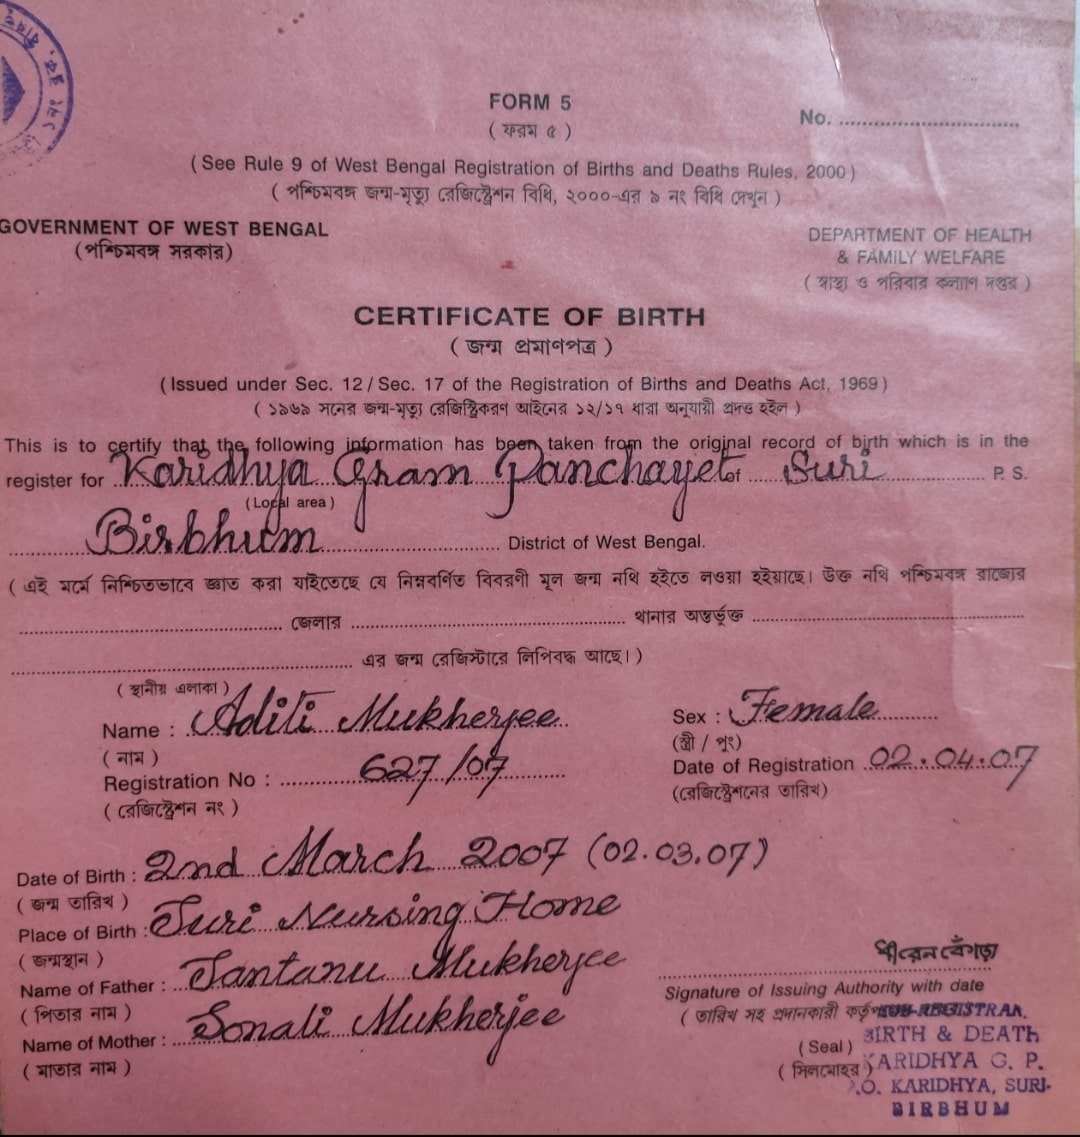 FORM 5
( ফরম ৫ )
No. ..............................
(See Rule 9 of West Bengal Registration of Births and Deaths Rules, 2000)
( পশ্চিমবঙ্গ জন্ম-মৃত্যু রেজিস্ট্রেশন বিধি, ২০০০-এর ৯ নং বিধি দেখুন )
GOVERNMENT OF WEST BENGAL
(পশ্চিমবঙ্গ সরকার)
DEPARTMENT OF HEALTH
& FAMILY WELFARE
( স্বাস্থ্য ও পরিবার কল্যাণ দপ্তর )
CERTIFICATE OF BIRTH
( জন্ম প্রমাণপত্র )
(Issued under Sec. 12 / Sec. 17 of the Registration of Births and Deaths Act, 1969)
( ১৯৬৯ সনের জন্ম-মৃত্যু রেজিস্ট্রিকরণ আইনের ১২/১৭ ধারা অনুযায়ী প্রদত্ত হইল )
This is to certify that the following information has been taken from the original record of birth which is in the
register for Karidhya Gram Panchayet of Suri P. S.
(Local area)
Birbhum District of West Bengal.
( এই মর্মে নিশ্চিতভাবে জ্ঞাত করা যাইতেছে যে নিম্নবর্ণিত বিবরণী মূল জন্ম নথি হইতে লওয়া হইয়াছে। উক্ত নথি পশ্চিমবঙ্গ রাজ্যের
.............................. জেলার .............................. থানার অন্তর্ভুক্ত ..............................
.............................. এর জন্ম রেজিস্টারে লিপিবদ্ধ আছে। )
( স্থানীয় এলাকা )
Name : Aditi Mukherjee Sex : Female
( নাম ) (স্ত্রী / পুং)
Registration No : 627/07 Date of Registration 02.04.07
( রেজিস্ট্রেশন নং ) (রেজিস্ট্রেশনের তারিখ)
Date of Birth : 2nd March 2007 (02.03.07)
( জন্ম তারিখ )
Place of Birth : Suri Nursing Home
( জন্মস্থান )
Name of Father : Santanu Mukherjee
( পিতার নাম )
Name of Mother : Sonali Mukherjee
( মাতার নাম )
Signature of Issuing Authority with date
( তারিখ সহ প্রদানকারী
SUB-REGISTRAR,
(Seal) BIRTH & DEATH
( সিলমোহর ) KARIDHYA G. P.
P.O. KARIDHYA, SURI-
BIRBHUM